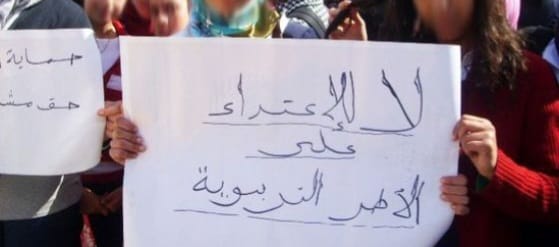 لا للإعتداء
على
الأطر التربوية
حماية
حق مش